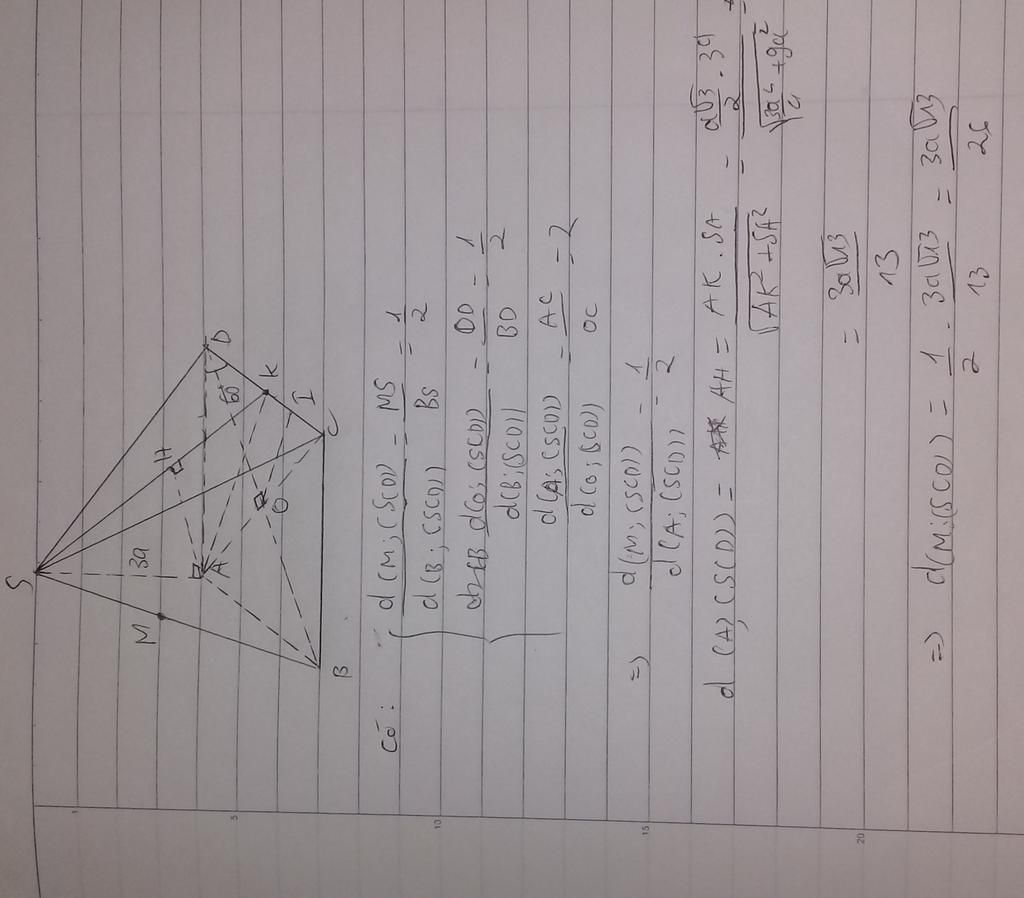 S
3a
M
H
A
D
60
K
I
O
B
C
Có:
d(M;(SCD)) / d(B;(SCD)) = MS / BS = 1/2
d(O;(SCD)) / d(B;(SCD)) = OD / BD = 1/2
d(A;(SCD)) / d(O;(SCD)) = AC / OC = 2
=> d(M;(SCD)) / d(A;(SCD)) = 1/2
d(A;(SCD)) = AH = AK.SA / √(AK²+SA²) = (a√3/2 . 3a) / √(3a²/4 + 9a²)
= 3a√13 / 13
=> d(M;(SCD)) = 1/2 . 3a√13/13 = 3a√13/26
1
5
10
15
20